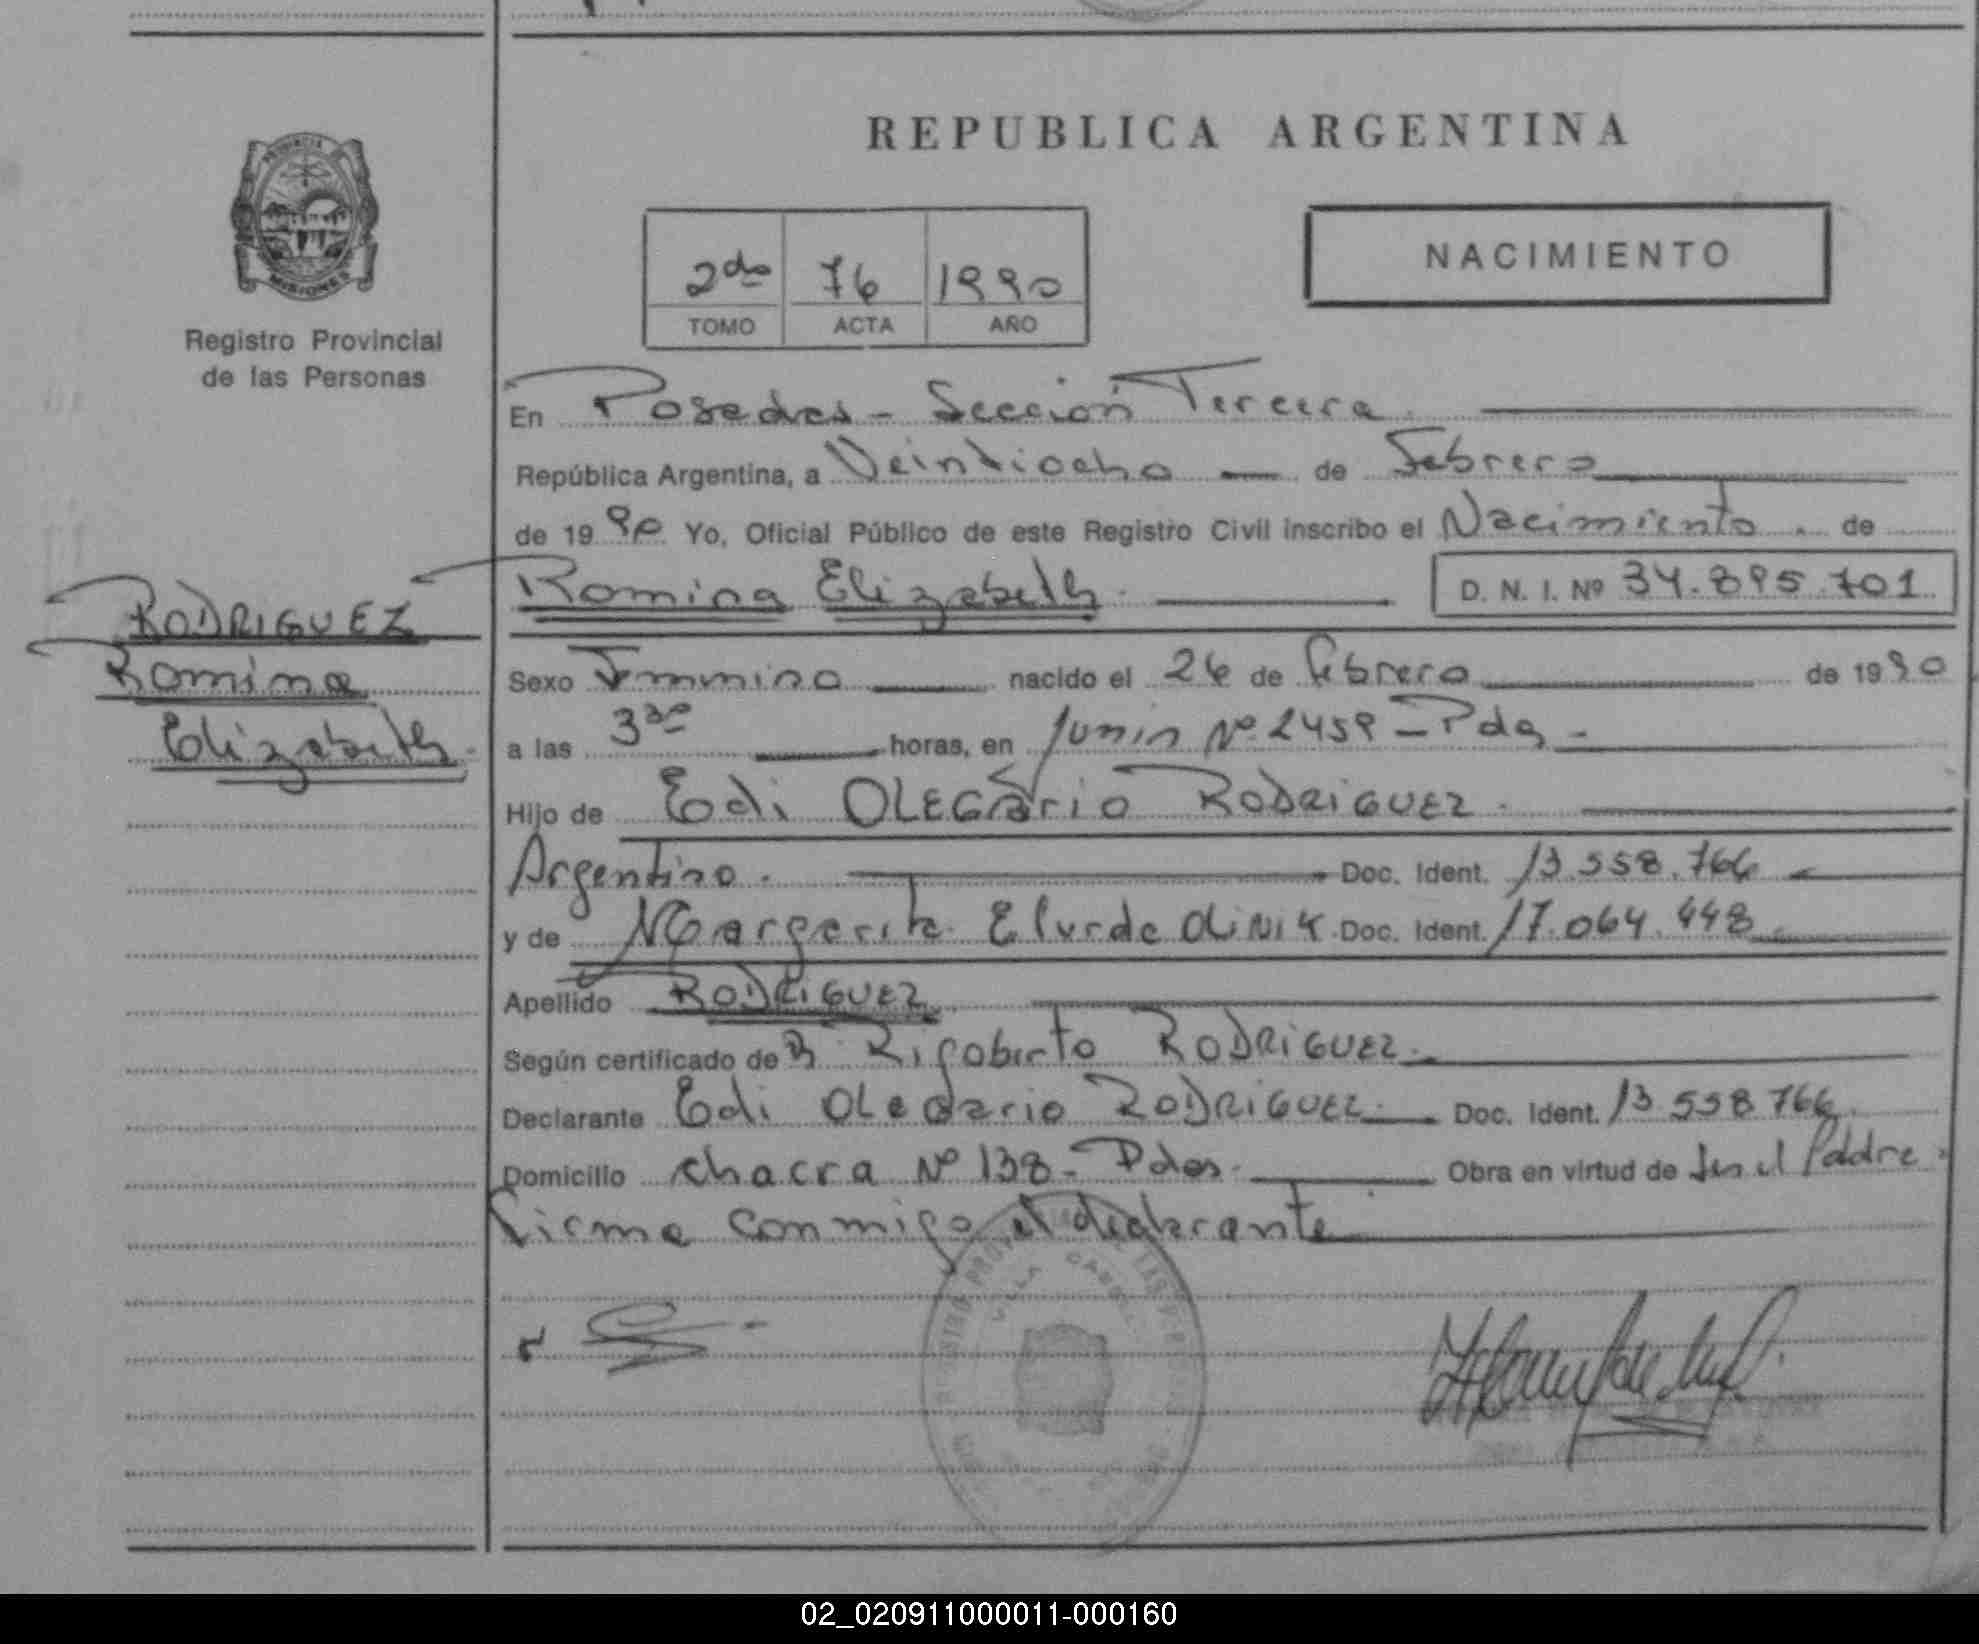 REPUBLICA ARGENTINA
PROVINCIA
MISIONES
Registro Provincial
de las Personas
2do 76 1990
TOMO ACTA AÑO
NACIMIENTO
En Posadas - Sección Tercera
República Argentina, a Veintiocho de Febrero
de 1990 Yo, Oficial Público de este Registro Civil inscribo el Nacimiento. de
Romina Elizabeth. D. N. I. Nº 34.895.701
RODRIGUEZ
Romina
Elizabeth.
Sexo Femmino nacido el 26 de febrero de 1990
a las 330 horas, en Junin Nº 2459 - Pdas -
Hijo de Edi OLEGario RODRIGUEZ.
Argentino. Doc. Ident. 13.558.766
y de Margarita Doc. Ident. 17.064.448
Apellido RODRIGUEZ
Según certificado de Rigoberto RODRIGUEZ.
Declarante Edi OLegario RODRIGUEZ. Doc. Ident. 13.558.766
Domicilio chacra Nº 138 - Pdas. Obra en virtud de Ser el Padre.
firma conmigo el declarante
VILLA CABELLO
02_020911000011-000160